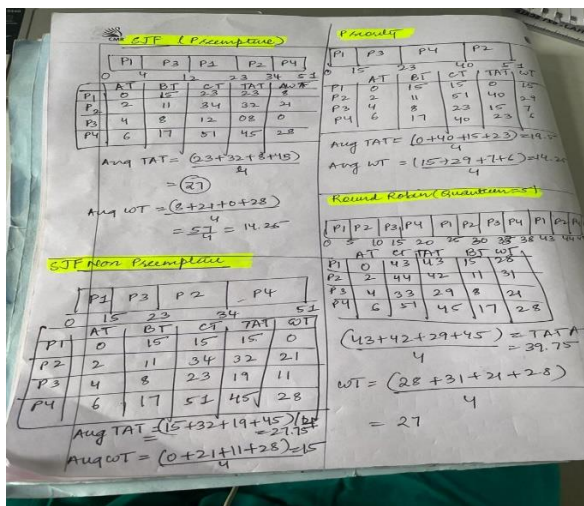 CMR
SJF (Preemptive)
P1 P3 P1 P2 P4
0 4 12 23 34 51
AT BT CT TAT
P1 0 15 23 23 8
P2 2 11 34 32 21
P3 4 8 12 08 0
P4 6 17 51 45 28
Avg TAT = (23+32+8+45)
4
= 27
Avg WT = (8+21+0+28)
4
= 57/4 = 14.25
SJF Non Preemptive
P1 P3 P2 P4
0 15 23 34 51
AT BT CT TAT WT
P1 0 15 15 15 0
P2 2 11 34 32 21
P3 4 8 23 19 11
P4 6 17 51 45 28
Avg TAT = (15+32+19+45)
= 27.75
Avg WT = (0+21+11+28) = 15
4
Priority
P1 P3 P4 P2
0 15 23 40 51
AT BT CT TAT WT
P1 0 15 15 0 15
P2 2 11 51 40 29
P3 4 8 23 15 7
P4 6 17 40 23 6
Avg TAT = (0+40+15+23) = 19.5
4
Avg WT = (15+29+7+6) = 14.25
4
Round Robin (Quantum=5)
P1 P2 P3 P4 P1 P2 P3 P4 P1 P2 P4
0 5 10 15 20 25 30 33 38 43 44
AT CT TAT BT WT
P1 0 43 43 15 28
P2 2 44 42 11 31
P3 4 33 29 8 21
P4 6 51 45 17 28
(43+42+29+45) = TATA
4 = 39.75
WT = (28+31+21+28)
4
= 27